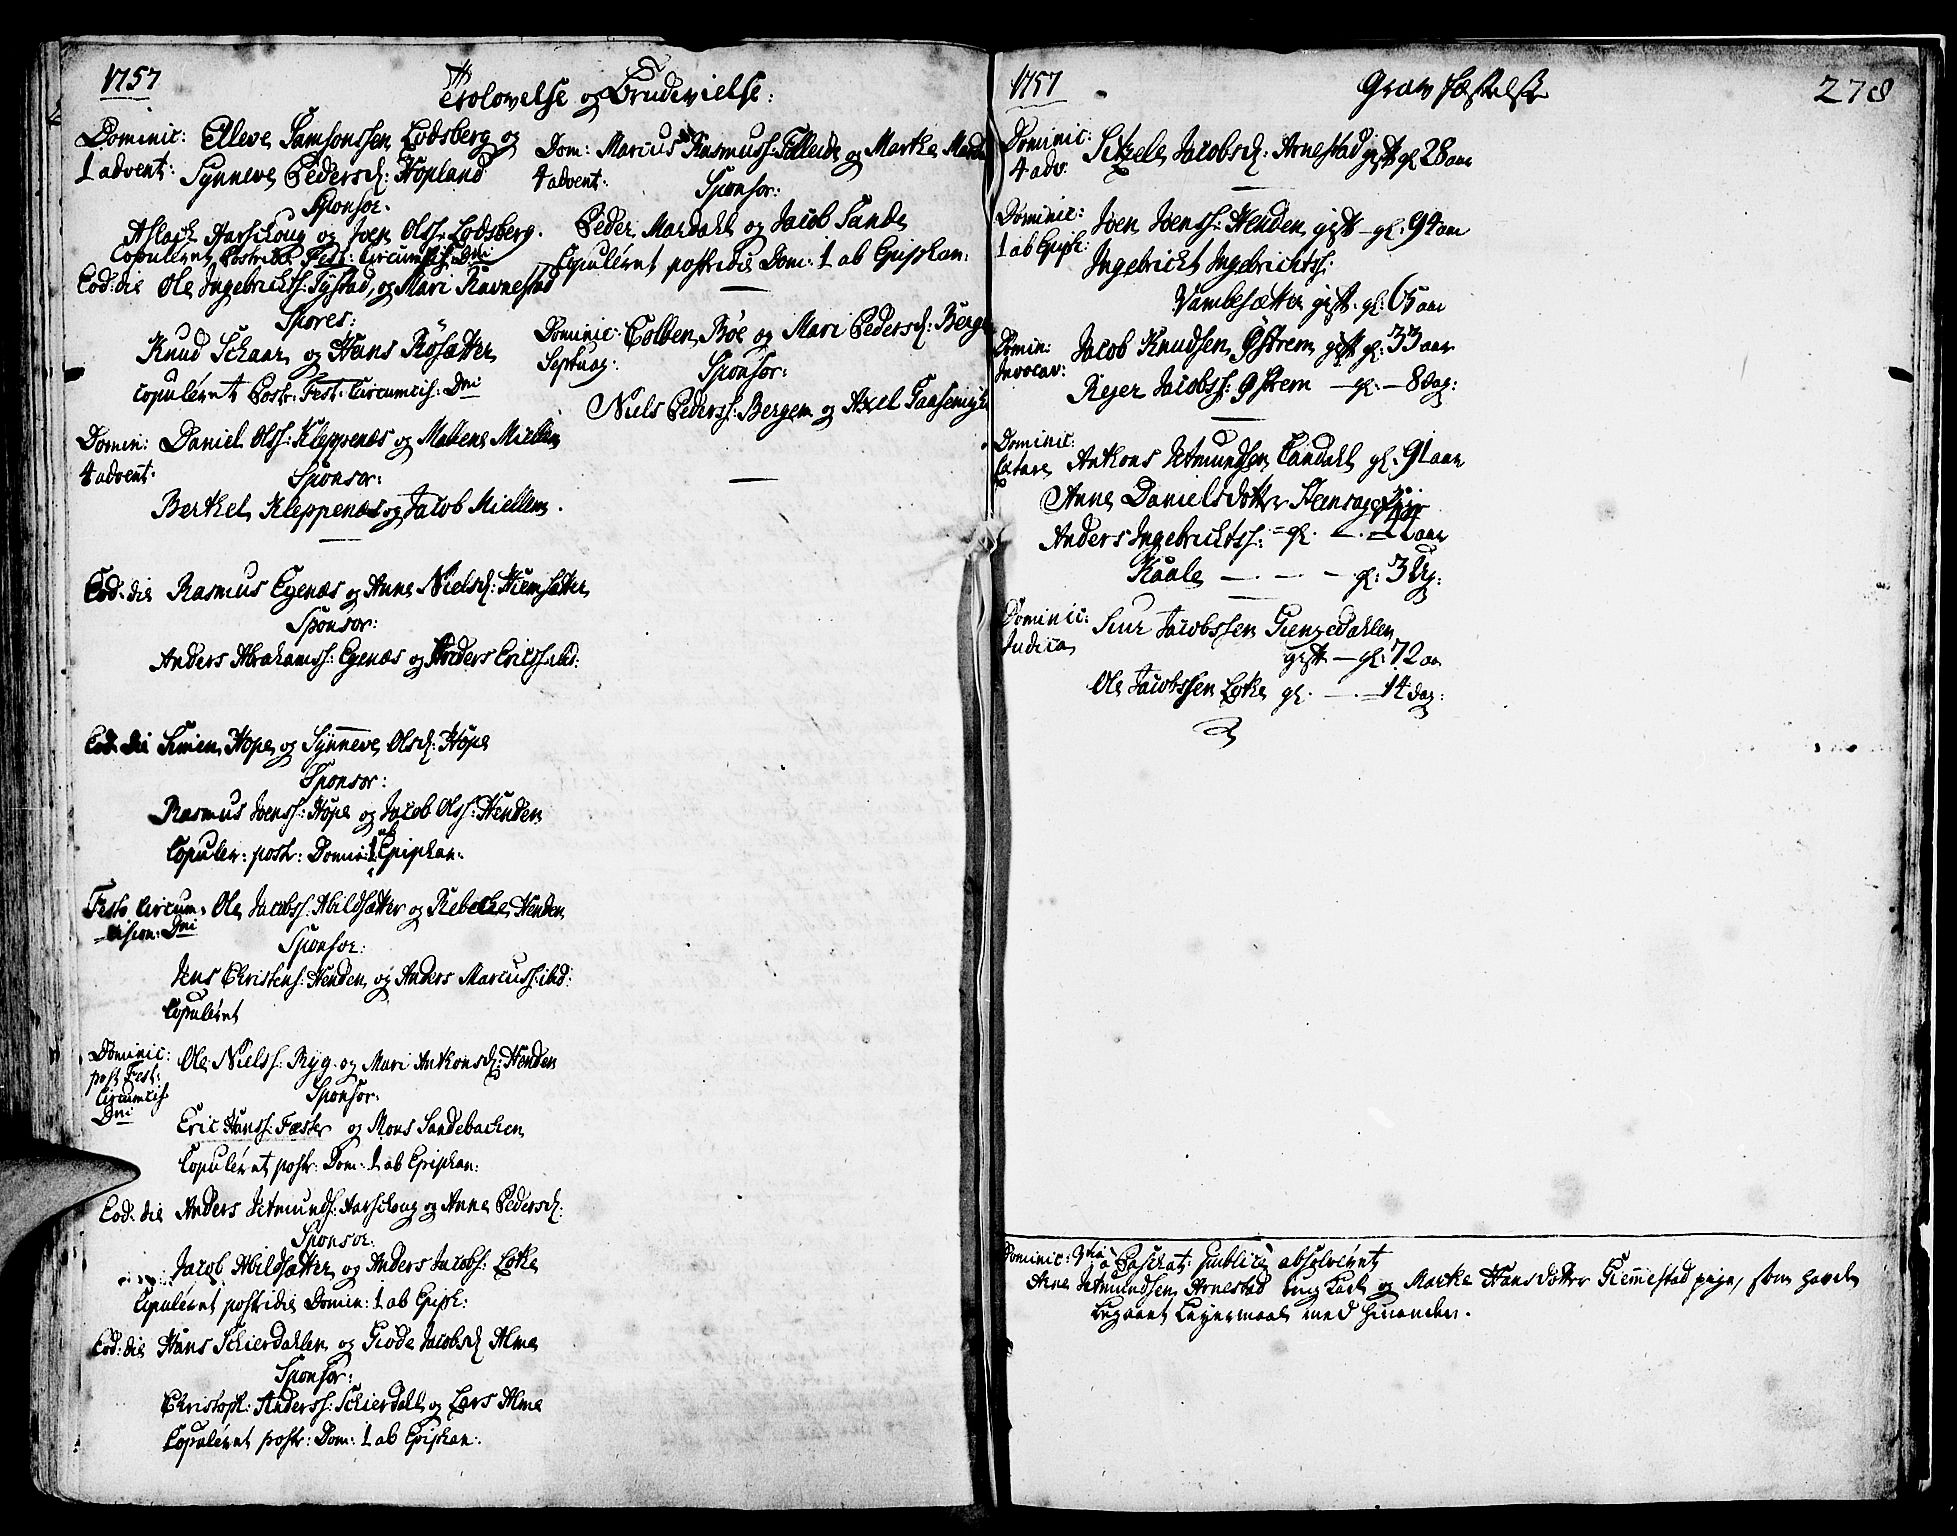 1757
Trolovelse og Brudevielse:
Dominic: Elleve Samsonssen Lodsberg og
1 advent: Synneve Pedersd: Hopland
Sponsor.
Aslach Aarschoug og Joen Olss: Lodsberg.
Copuleret Postridie Fest: Circumcis: Dni
Eod: die Ole Ingebrichtss: Tystad, og Mari Ravnestad
Spores:
Knud Schaar og Hans Rösætter
copuleret Postr. Fest. Circumcis: Dni
Domin: Daniel Olss: Kleppenæs og Malene Miellem
4 advent: Sponsor:
Berthel Kleppenæs og Jacob Miellem.
Eod. die Rasmus Egenæs og Anne Nielsd: Hiemsætter
Sponsor:
Anders Abrahamss: Egenæs og Anders Ericss: ibd:
Eod. die Simen Hope og Synneve Olsd: Hope
Sponsor:
Rasmus Joenss: Hope og Jacob Olss: Henden
Copuler: postr: Domin: 1 ab Epiphan:
Festo Circum- Ole Jacobss: Abildsætter og Rebecke Henden
=cision: Dni
Sponsor:
Jens Christens: Henden og Anders Marcuss: ibd:
Copuleret
Dominic: Ole Nielss: Ryg og Mari Anthonsd: Henden
post Fest:
Circumcis. Sponsor:
Dni
Eric Hanss: Fæster og Mons Sandebachen
Copuleret postr: Dom: 1 ab Epiphan:
Eod: die Anders Jetmunds: Aarschoug og Anne Pedersd:
Sponsor:
Jacob Abildsætter og Anders Jacobs: Lothe
Copuleret postridie Domin: 1 ab Epiph:
Eod: die Hans Schierdahlen og Giøde Jacobsd Alme
Sponsor:
Christoph: Anderss: Schierdall og Lars Alme
Copuleret postr: Dom: 1 ab Epiphan:.
Dom: Marcus Rasmuss: Tolleide og Marthe Mardal
4 advent: Sponsor:
Peder Mardahl og Jacob Sande
Copuleret postridie Dom: 1 ab Epiphan:
Dominic: Colben Böe og Mari Pedersd: Berge
Septuag: Sponsor:
Niels Peders: Bergem og Axel Gaasemyhr
1757
Grav fæstelse
278
Dominic: Sitzele Jacobsd: Arnestad gift gl: 28 aar
4 adv.
Dominic: Joen Joenss: Henden gift - gl. 94 aar
1 ab Epiph: Ingebricht Ingebrichtss:
Vambesætter gift. gl: 65 aar
Domin: Jacob Knudsen Østrem gift gl: 33 aar
Invocav: Rejer Jacobss: Østrem - gl: - 8 dag:
Dominic:
Lætare Anthons Jetmundsen Tandahl gl: 91 aar
Anne Danielsdotter Hensøgen
Anders Ingebrichtss: - gl.
Kaale - . - - gl: 3 Ug:
Dominic: Siur Jacobssen Giengedahlen
Judica gift - gl: 72 aar
Ole Jacobssen Lothe gl. - . - 14 dag:
Dominic: 3tia Paschat: publice absolveret
Arne Jetmundsen Arnestad ung Karl og Marthe Hansdotter Giemmestad pige, som havde
begaaet Lejermaal med hinanden.